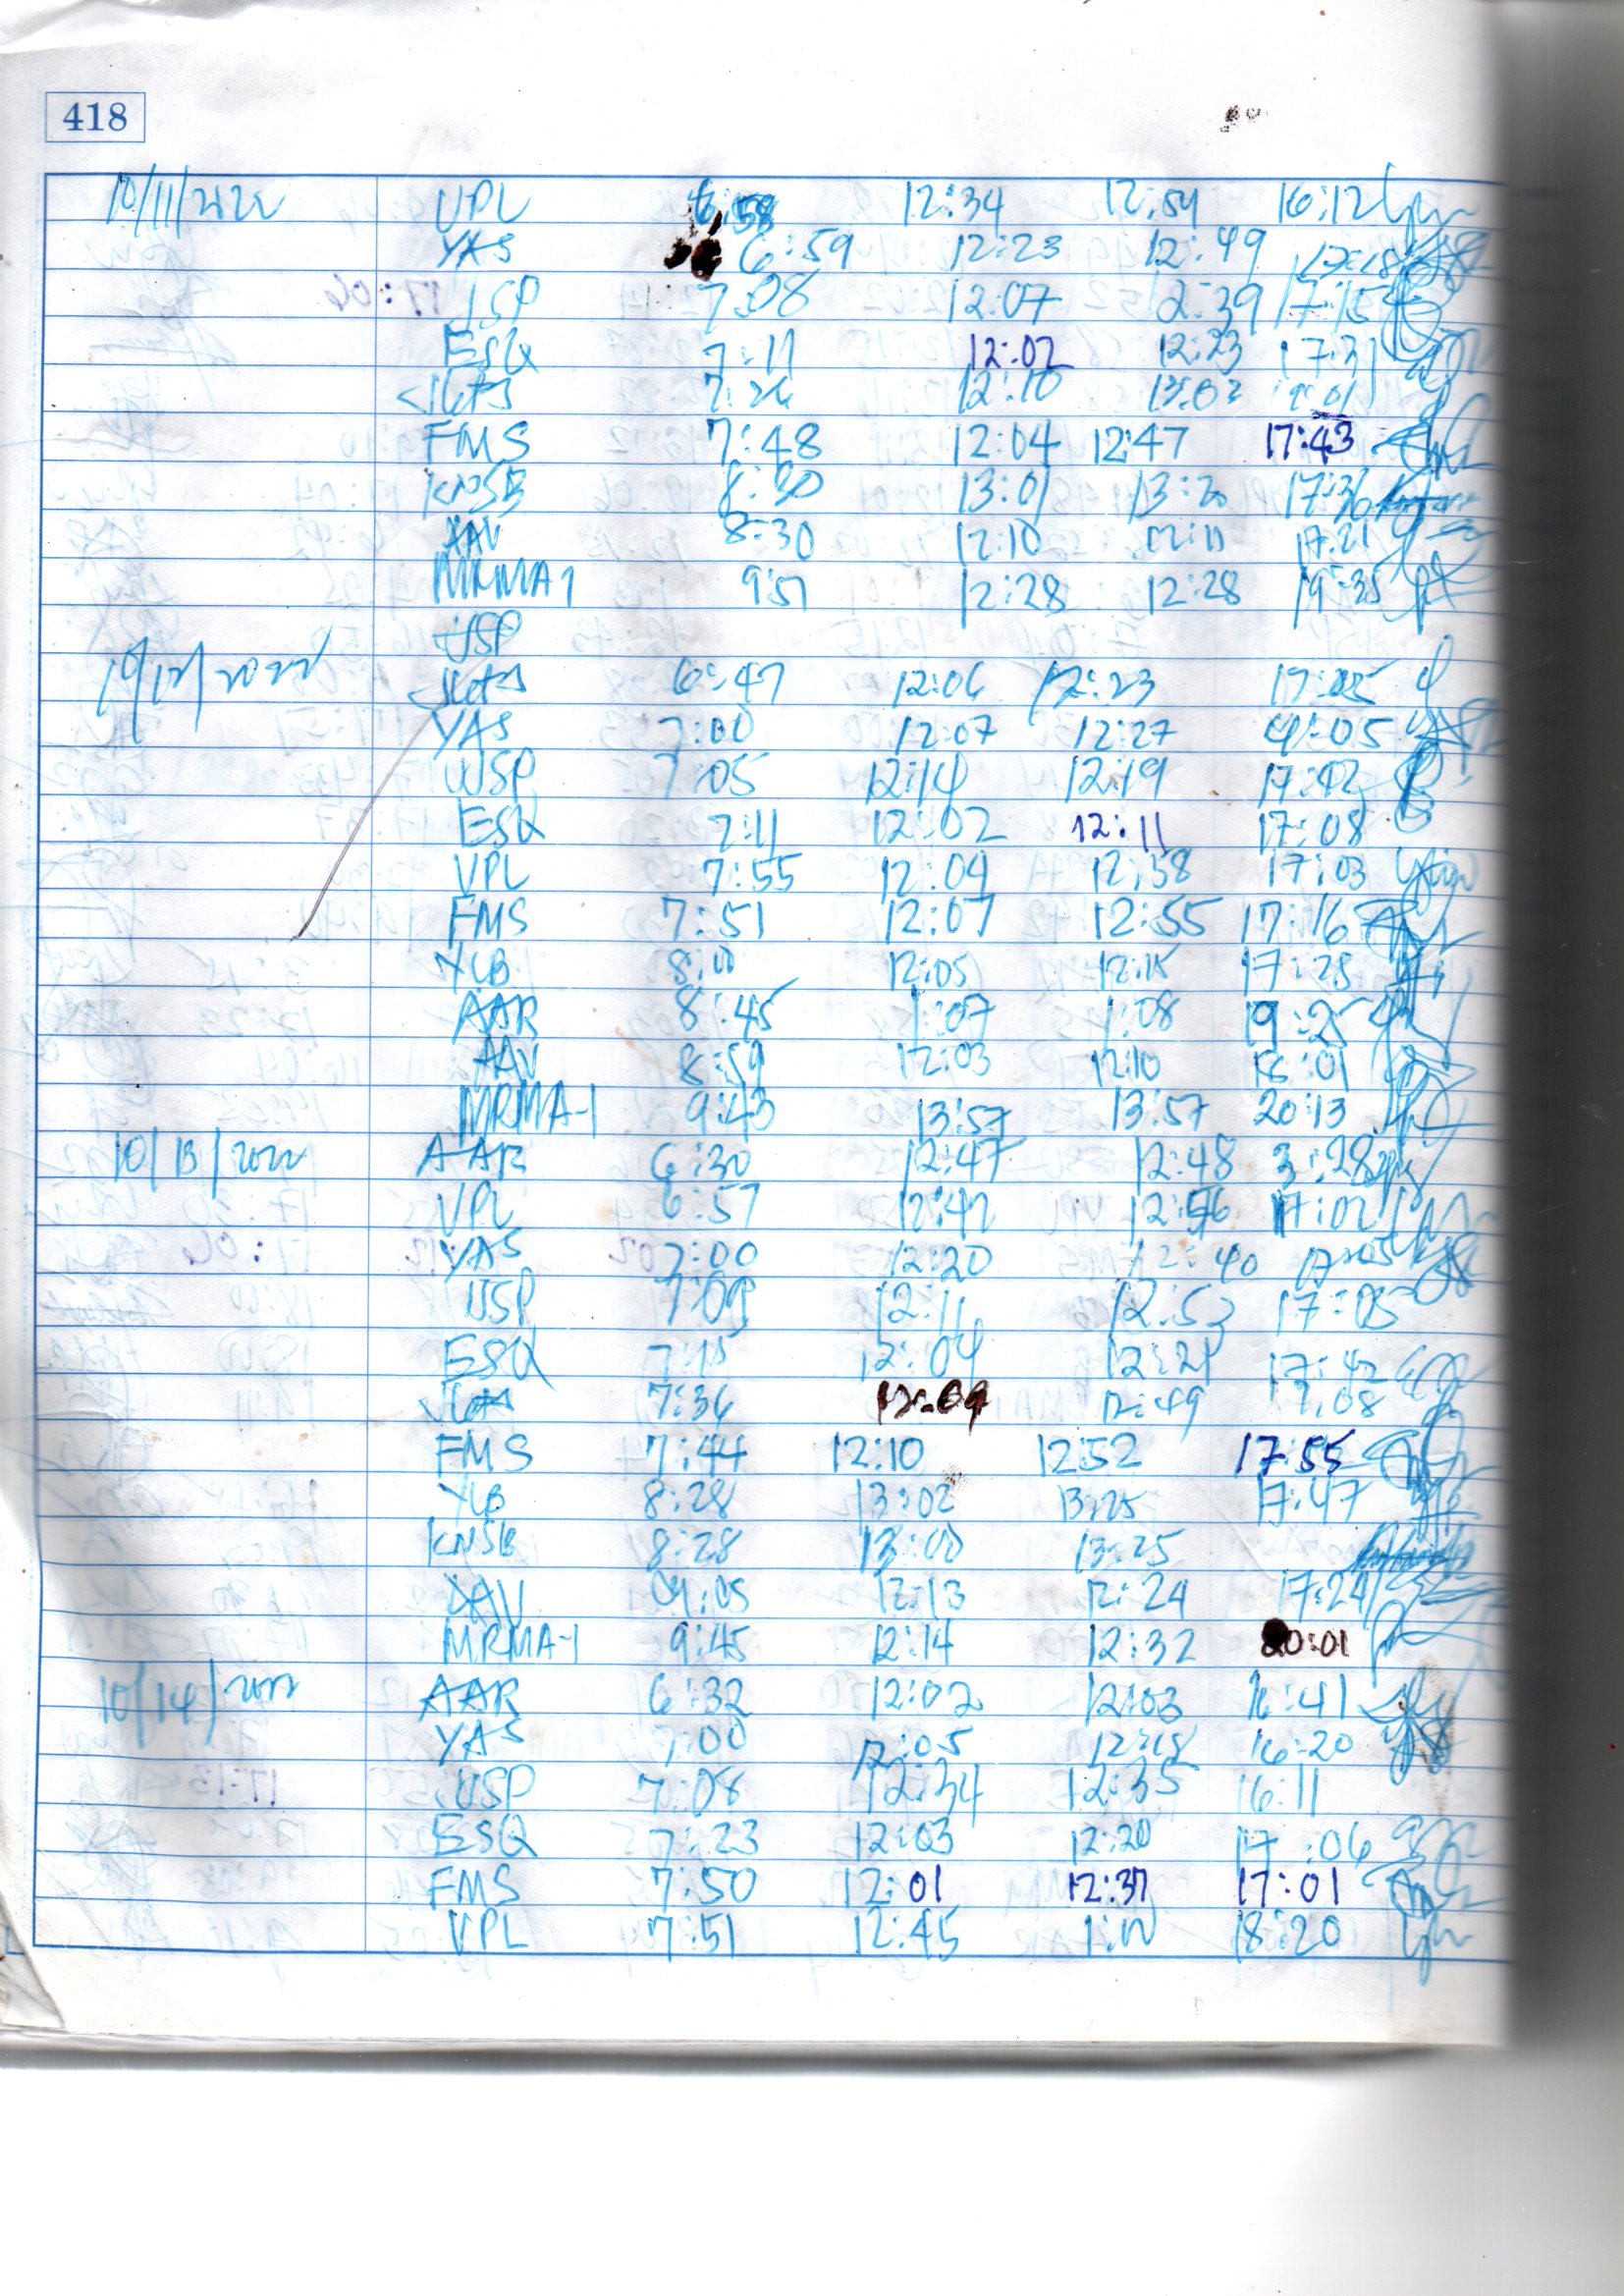 418
10/11/2022 VPL 6:58 12:34 12:54 16:12
YAS 6:59 12:23 12:49
JSP 7:08 12:07 12:39 17:15
ESQ 7:11 12:02 12:23 17:31
7:26 12:10 13:03
FMS 7:48 12:04 12:47 17:43
KNSB 8:30 13:01 13:20 17:36
AAV 8:30 12:10 12:11 17:21
MRMA1 9:51 12:28 12:28 19:35
JSP
10/12/2022 6:47 12:06 12:23
YAS 7:00 12:07 12:27
JSP 7:05 12:14 12:19 17:42
ESQ 7:11 12:02 12:11 17:08
VPL 7:55 12:09 12:58 17:03
FMS 7:51 12:07 12:55 17:16
YLB 8:00 12:05 12:15 17:28
AAR 8:45 1:07 1:08 19:25
AAV 8:59 12:03 12:10
MRMA-1 9:43 13:57 13:57 20:13
10/13/2022 AAR 6:30 12:47 12:48 3:28
VPL 6:57 12:42 12:56 17:02
YAS 7:00 12:20 12:40 17:05
JSP 7:09 12:11 12:53 17:05
ESQ 7:15 12:04 12:21 17:42
7:36 12:09 12:49 17:08
FMS 7:44 12:10 12:52 17:55
YLB 8:28 13:02 13:25 17:47
KNSB 8:28 13:00 13:25
AAV 9:05 12:13 12:24 17:24
MRMA-1 9:45 12:14 12:32 20:01
10/14/2022 AAR 6:32 12:02 12:03 16:41
YAS 7:00 12:05 12:18 16:20
JSP 7:08 12:34 12:35 16:11
ESQ 7:23 12:03 12:20 17:06
FMS 7:50 12:01 12:37 17:01
VPL 7:51 12:45 1:00 18:20